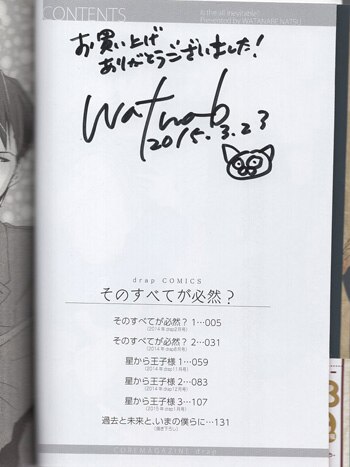 CONTENTS
Is the all inevitable?
Presented by WATANABE NATSU
お買い上げ
ありがとうございました!
Watnab
2015.3.23
drap COMICS
そのすべてが必然?
そのすべてが必然? 1…005
(2014年drap2月号)
そのすべてが必然? 2…031
(2014年drap8月号)
星から王子様 1…059
(2014年drap11月号)
星から王子様 2…083
(2014年drap12月号)
星から王子様 3…107
(2015年drap1月号)
過去と未来と、いまの僕らに…131
(描き下ろし)
COREMAGAZINE drap